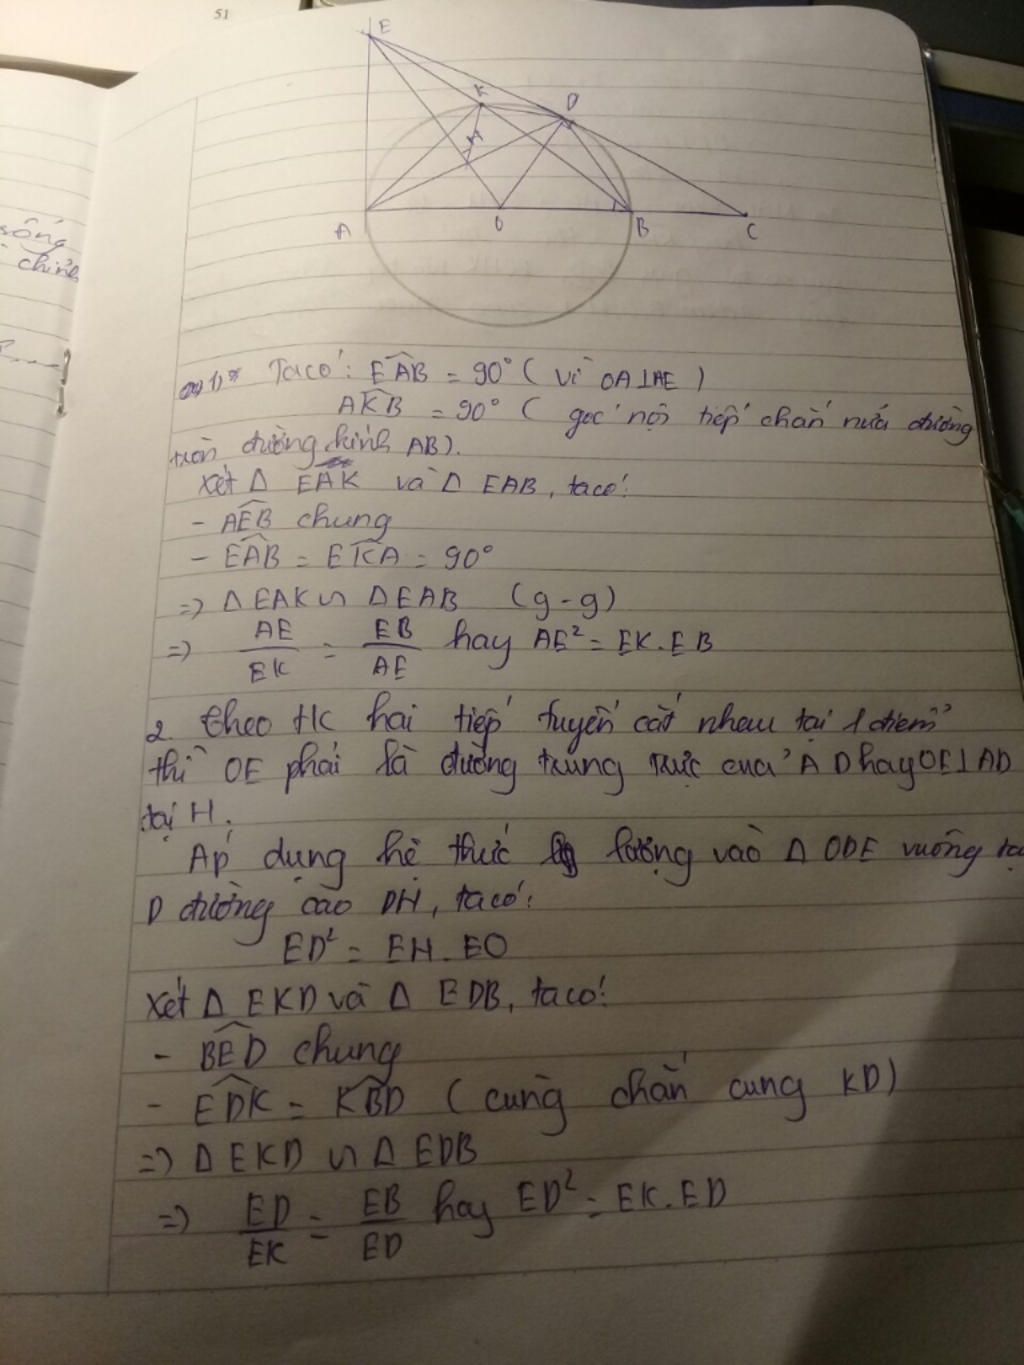 51
E
K
D
H
A
O
B
C
sống
chính
1) Ta có: EAB = 90° ( vì OA⊥AE )
AKB = 90° ( góc nội tiếp chắn nửa đường
tròn đường kính AB).
Xét Δ EAK và Δ EAB, ta có:
- AEB chung
- EAB = EKA = 90°
=> ΔEAK ∽ ΔEAB (g-g)
=> AE/EK = EB/AE hay AE² = EK.EB
2. theo t/c hai tiếp tuyến cắt nhau tại 1 điểm
thì OE phải là đường trung trực của AD hay OE⊥AD
tại H.
Áp dụng hệ thức lượng vào Δ ODE vuông tạ
D đường cao DH, ta có:
ED² = EH.EO
Xét Δ EKD và Δ EDB, ta có:
- BED chung
- EDK = KBD ( cùng chắn cung KD)
=> Δ EKD ∽ Δ EDB
=> ED/EK = EB/ED hay ED² = EK.ED